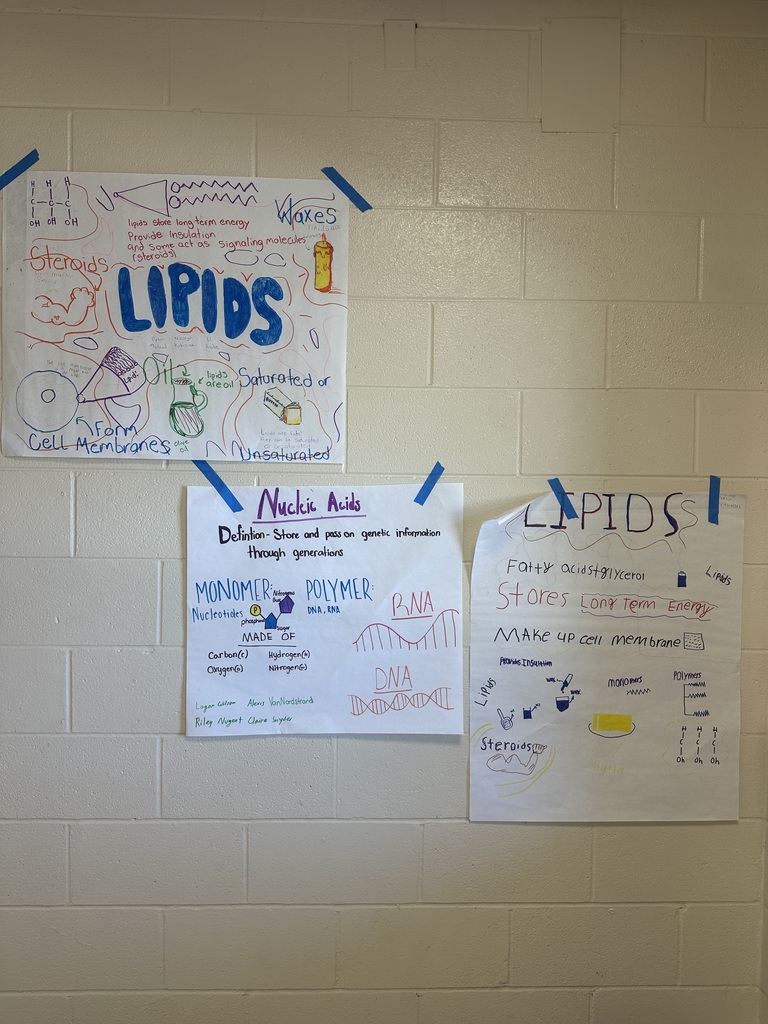 H H H
C - C - C
OH OH OH
lipids store long term energy
Provide Insulation
and some act as signaling molecules
(steroids)
Waxes
Steroids
LIPIDS
Oil
lipids
are oil
olive
oil
Saturated or
Unsaturated
Form
Cell Membranes
Nucleic Acids
Defintion- Store and pass on genetic information
through generations
MONOMER:
Nucleotides
P
phosphate
Sugar
POLYMER:
DNA, RNA
MADE OF
Carbon(c) Hydrogen(h)
Oxygen(o) Nitrogen(n)
RNA
DNA
Logan Wilson Alexis VanNordstrand
Riley Nugent Claire Snyder
LIPIDS
Fatty acids+glycerol
Lipids
Stores Long Term Energy
MAKE UP cell membrane
Provides Insulation
Lipids
wax
wax
monomers
Polymers
Steroids
H H H
C C C
Oh Oh Oh